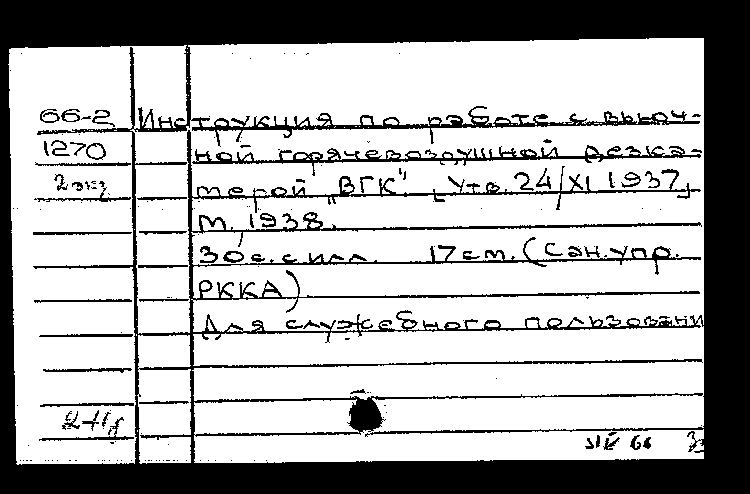 66-2 Инструкция по работе с вьюч-
1270 ной горячевоздушной дезка-
2 экз мерой "ВГК". [Утв. 24/XI 1937]
М., 1938.
30 с. с илл. 17 см. (Сан. упр.
РККА)
Для служебного пользовани
66